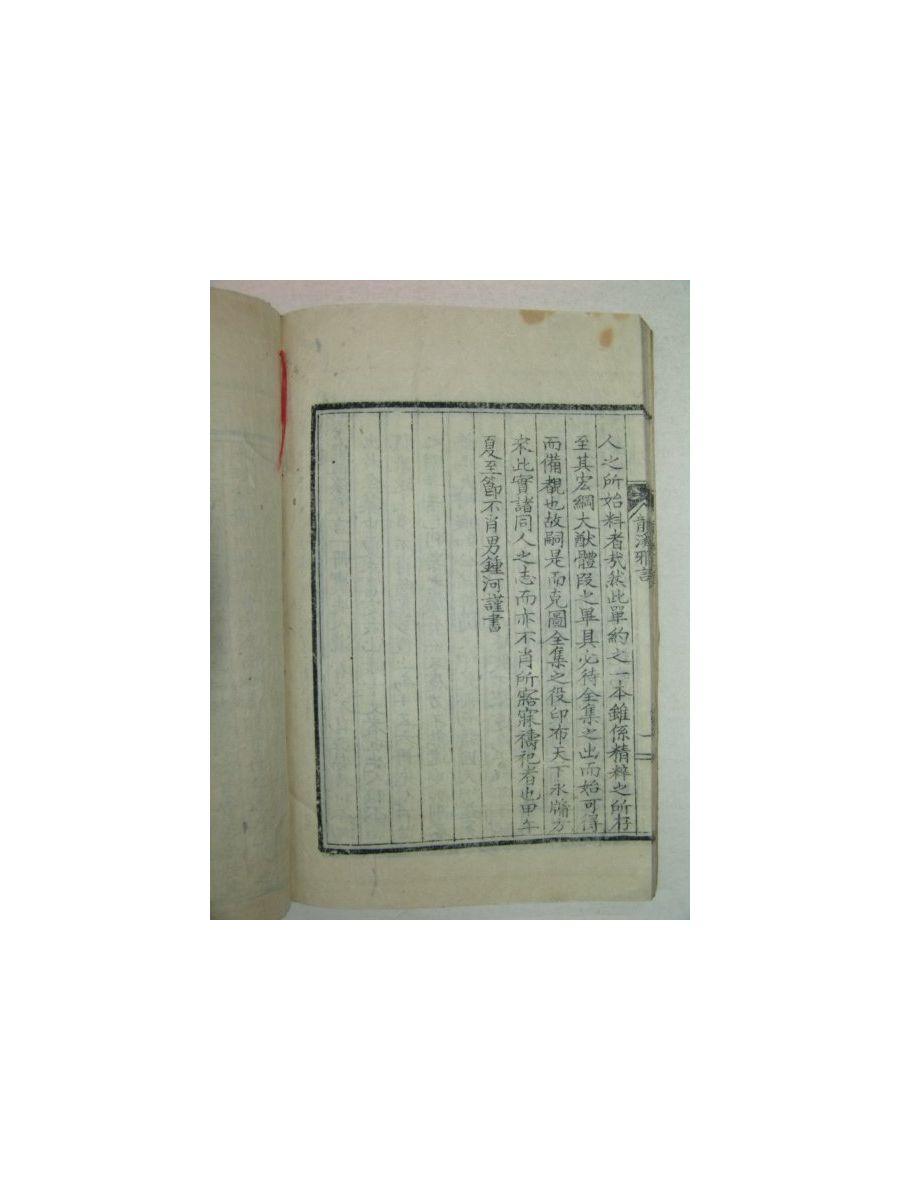 人之所始料者哉然此單約之一本雖係精粹之所存
至其宏綱大猷體段之畢具必待全集之出而始可得
而備覩也故嗣是而克圖全集之役印布天下永牖方
來此實諸同人之志而亦不肖所寤寐禱祀者也甲午
夏至節不肖男鍾河謹書
龍溪雅言